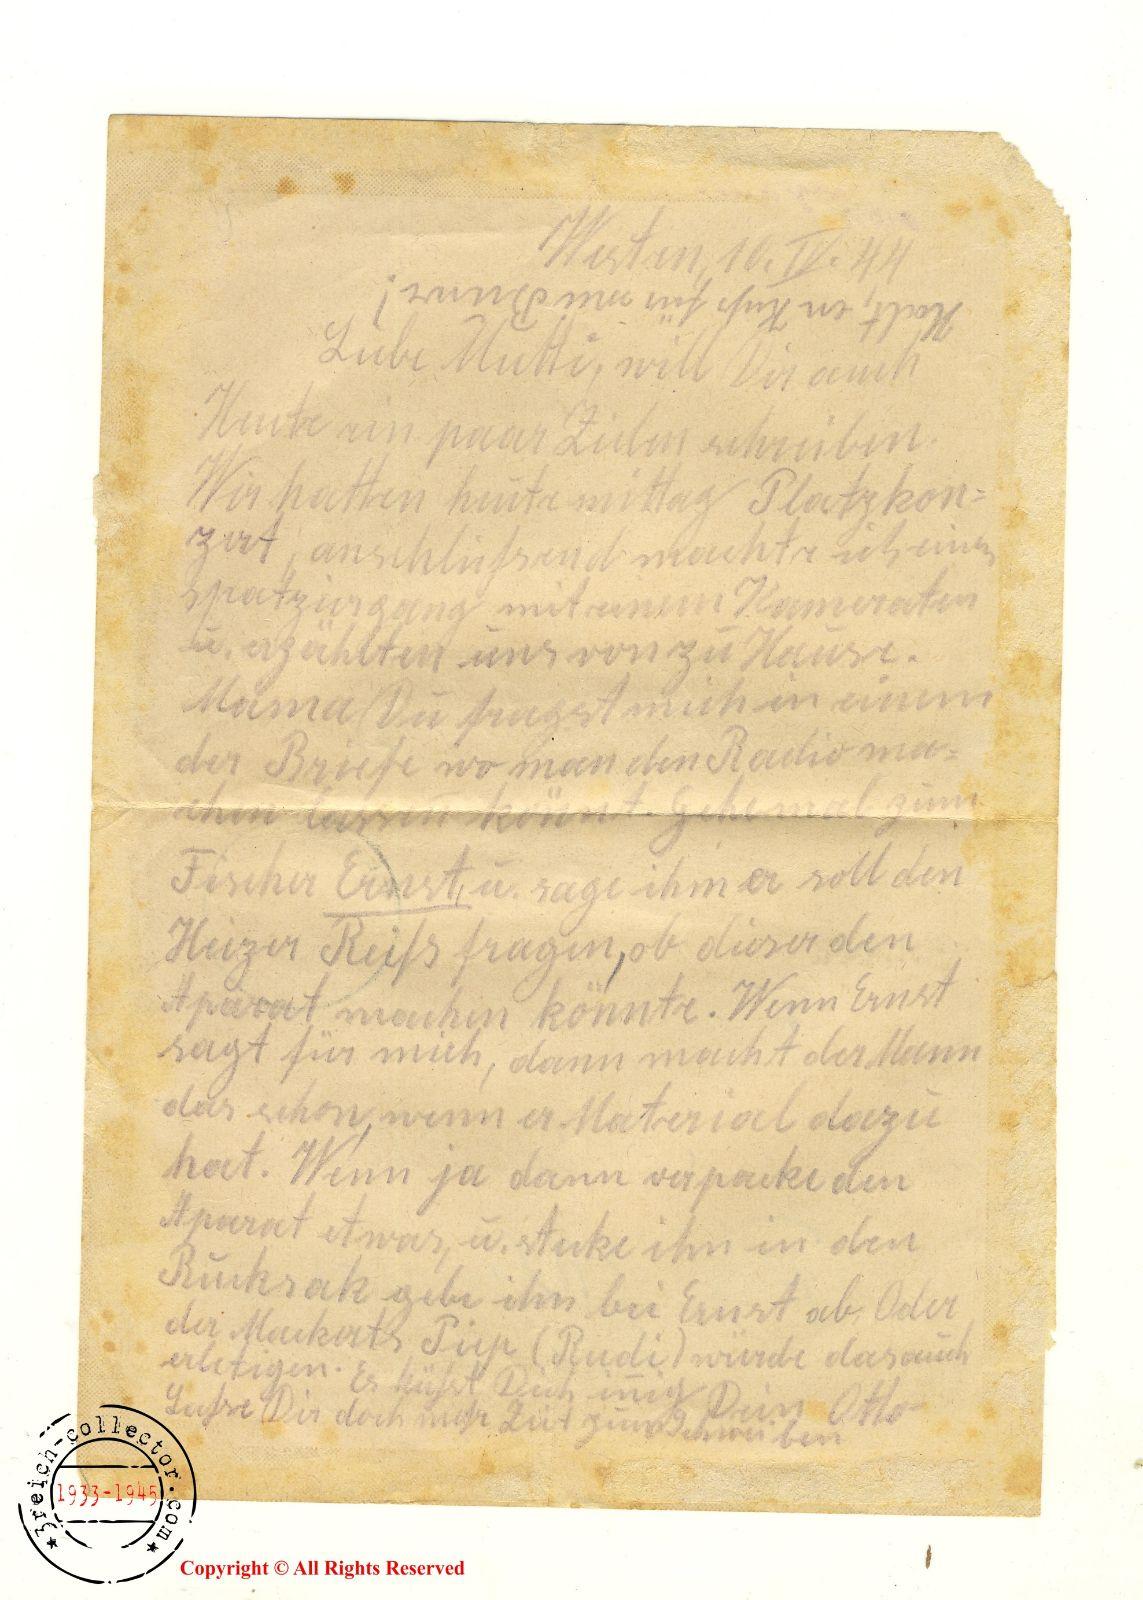 Westen, 10. IV. 44
Halt, ein Kuß für
Liebe Mutti, will Dir auch
Heute ein paar Zeilen schreiben.
Wir hatten heute mittag Platzkon=
zert, anschließend machte ich einen
spatziergang mit einem Kameraten
u. erzählten uns von zu Hause.
Mama Du fragst mich in einem
der Briefe wo man den Radio ma=
chen lassen könnt. Gehe mal zum
Fischer Ernst, u. sage ihm er soll den
Heizer Reiß fragen, ob dieser den
Aparat machen könnte. Wenn Ernst
sagt für mich, dann macht der Mann
das schon, wenn er Material dazu
hat. Wenn ja dann verpacke den
Aparat etwas, u. stecke ihn in den
Rucksak gebe ihn bei Ernst ab. Oder
der Mackerts Piep (Rudi) würde das auch
erletigen. Es küßt Dich innig Dein Otto
Laße Dir doch mehr Zeit zum Schreiben
3reich-collector.com
1933-1945
Copyright © All Rights Reserved